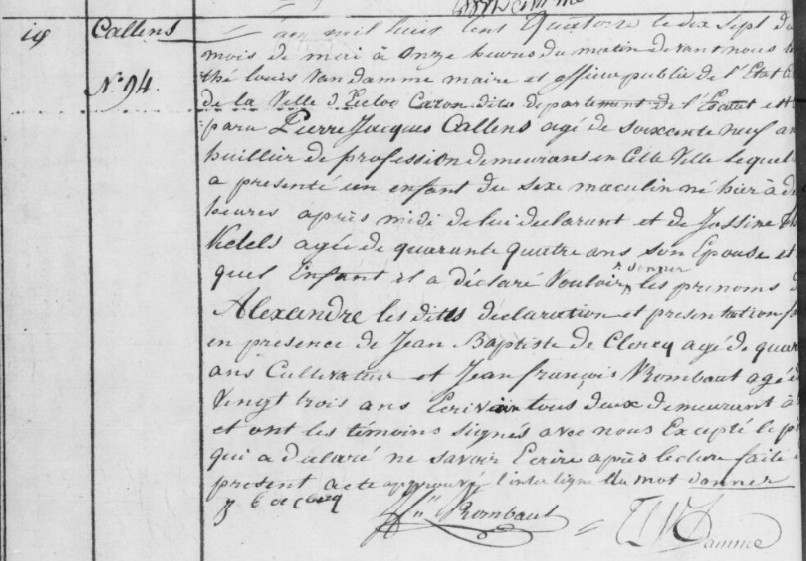 19
Callens
N° 94.
an mil huit cent Quatorze le dix sept du
mois de mai à onze heures du matin devant nous
thé louis Van damme maire et officier public de l'Etat
de la Ville d'Eecloo Canton dito departement de l'Escaut est
paru Pierre Jacques Callens agé de soixante neuf an
huillier de profession demeurant en Cette Ville lequel
a presenté un enfant du sexe masculin né hier à
heures après midi de lui declarant et de Jossine
Ketels agée de quarante quatre ans son Epouse et
quel Enfant il a déclaré Vouloir donner les prenoms
Alexandre les dites déclaration et presentation
en presence de Jean Baptiste de Clercq agé de quar
ans Cultivateur et Jean françois Rombaut agé
Vingt trois ans Ecrivain tous deux demeurant à
et ont les témoins signés avec nous Excepté le p
qui a déclaré ne savoir Ecrire après lecture faite
present acte approuvé l'interligne du mot donner
Rombaut
Damme